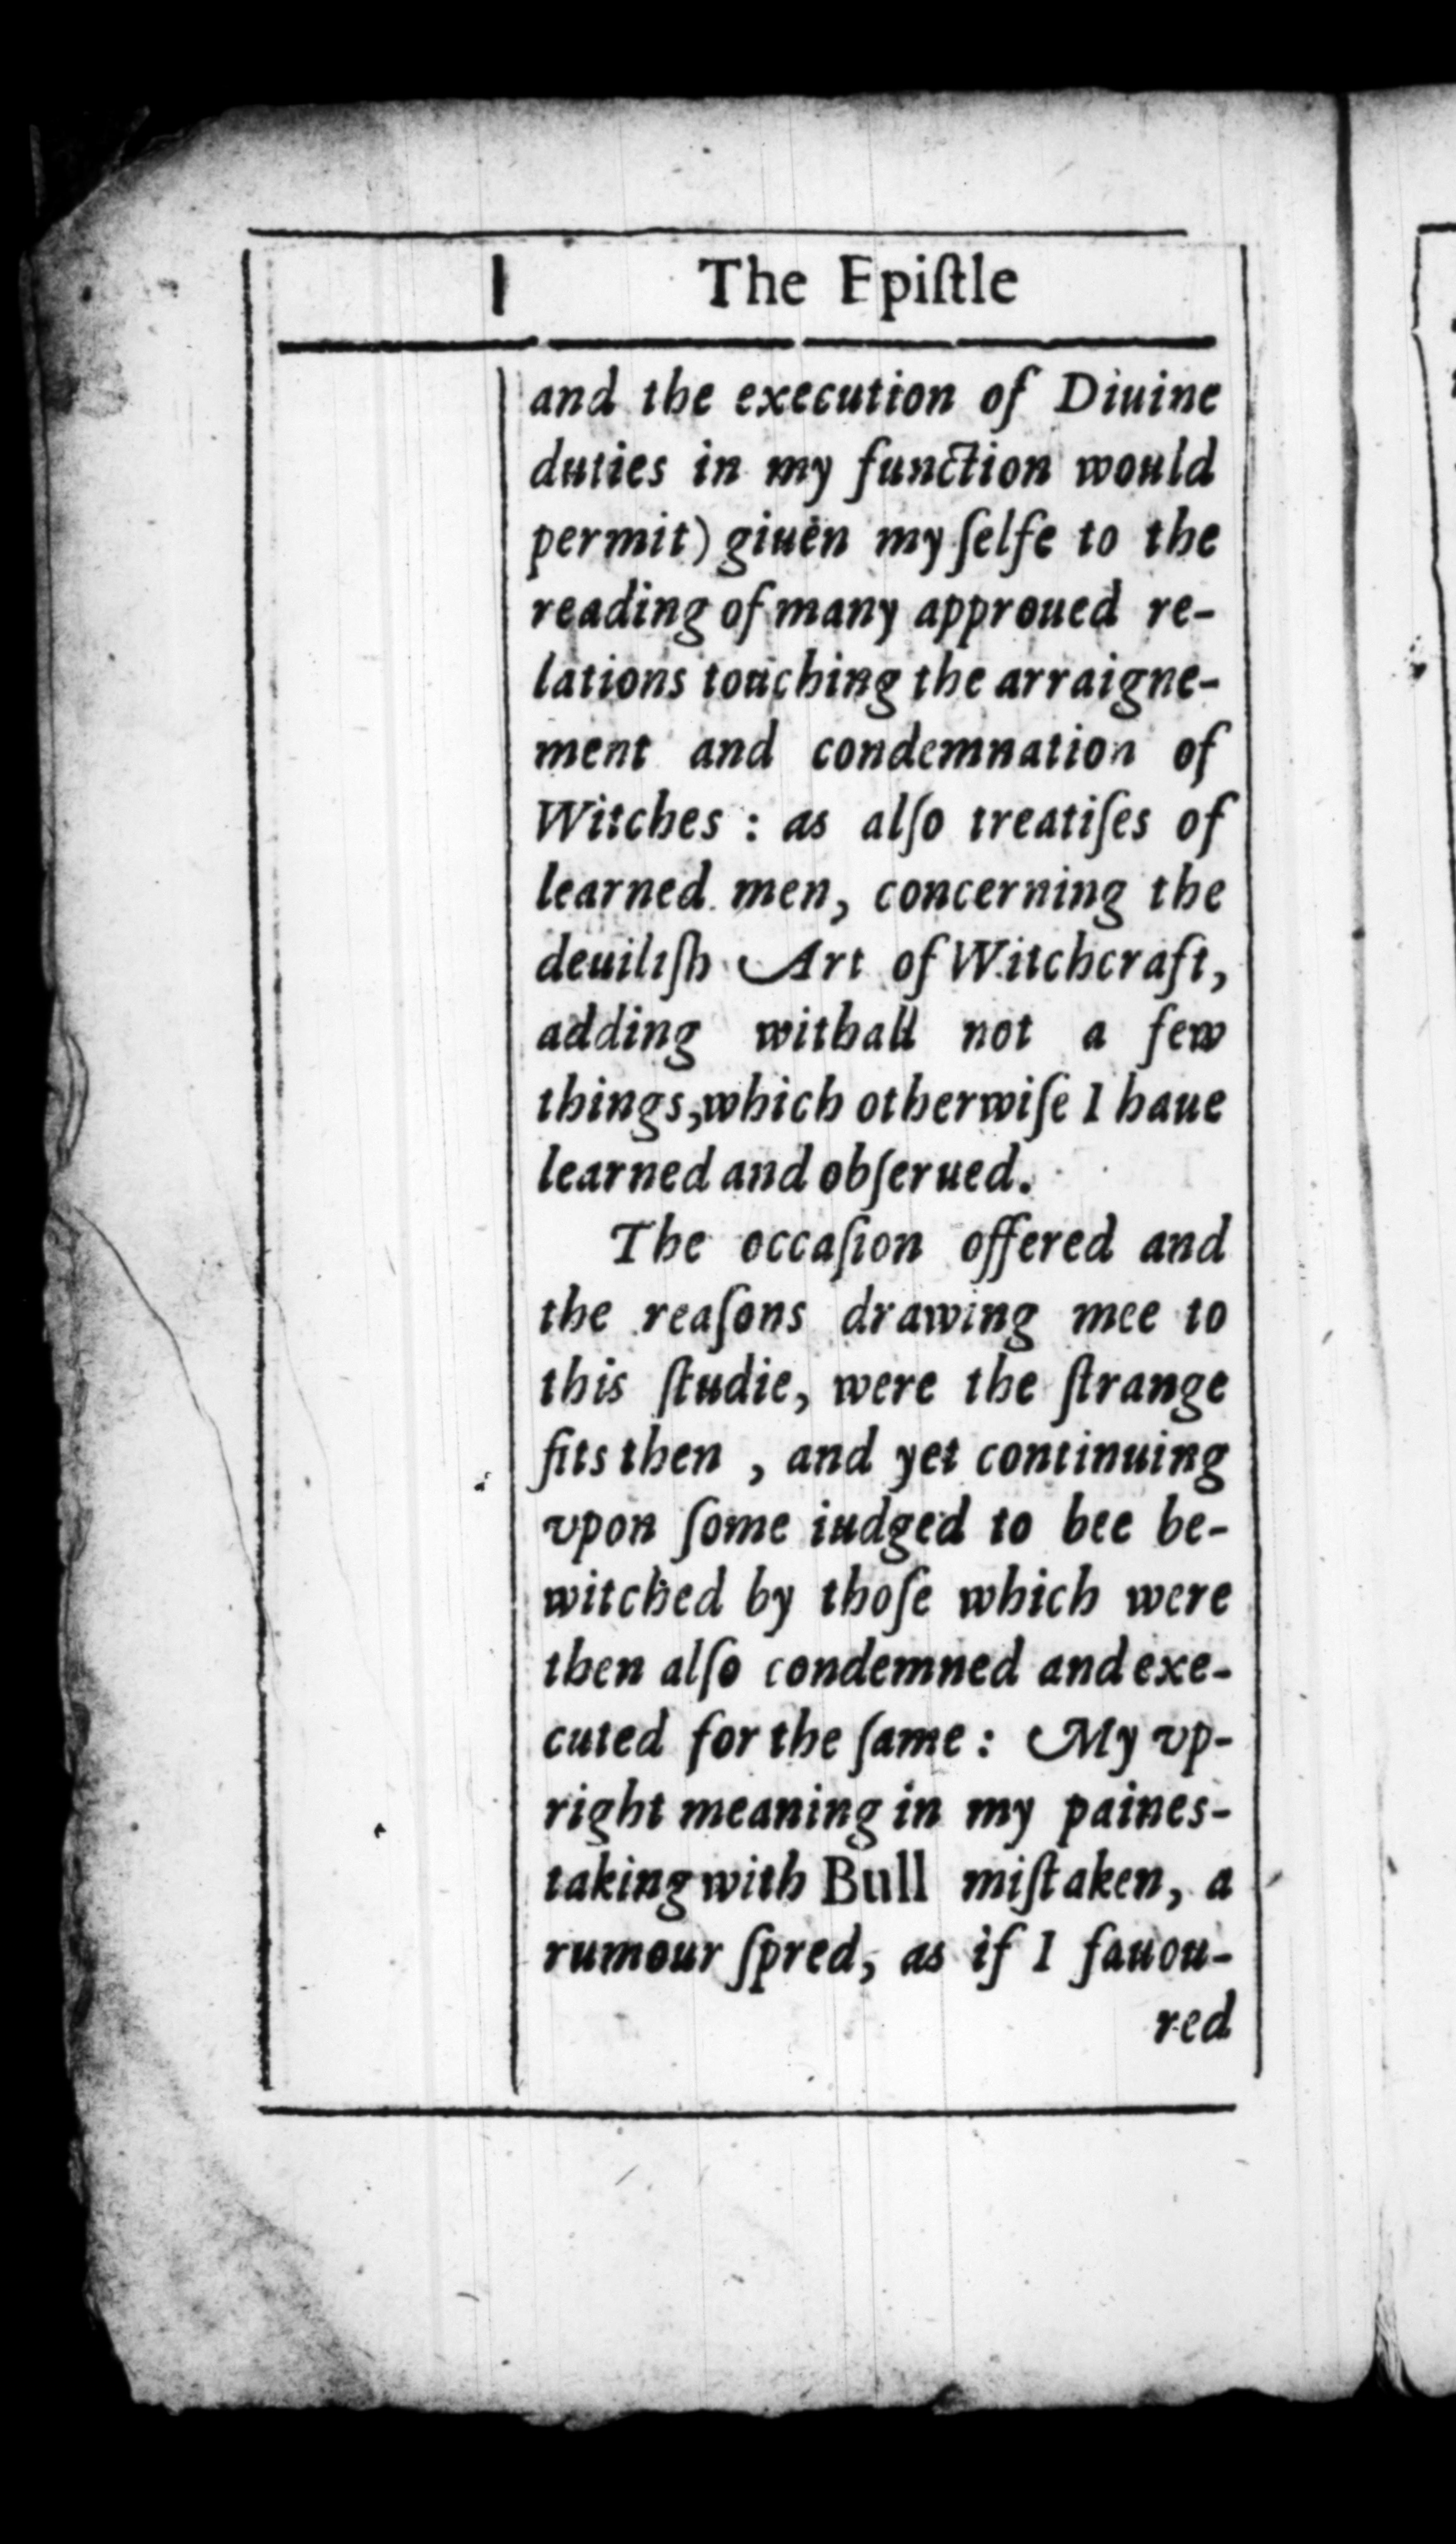 The Epiſtle
and the execution of Diuine
duties in my function would
permit) giuen my ſelfe to the
reading of many approued re-
lations touching the arraigne-
ment and condemnation of
Witches : as alſo treatiſes of
learned men, concerning the
deuiliſh Art of Witchcraft,
adding withall not a few
things,which otherwiſe I haue
learned and obſerued.
The occaſion offered and
the reaſons drawing mee to
this ſtudie, were the ſtrange
fits then , and yet continuing
vpon ſome iudged to bee be-
witched by thoſe which were
then alſo condemned and exe-
cuted for the ſame : My vp-
right meaning in my paines-
taking with Bull miſtaken, a
rumour ſpred, as if I fauou-
red